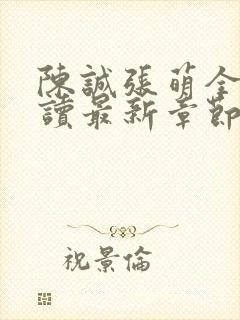 陳誠張萌全
讀最新章節
祝景倫